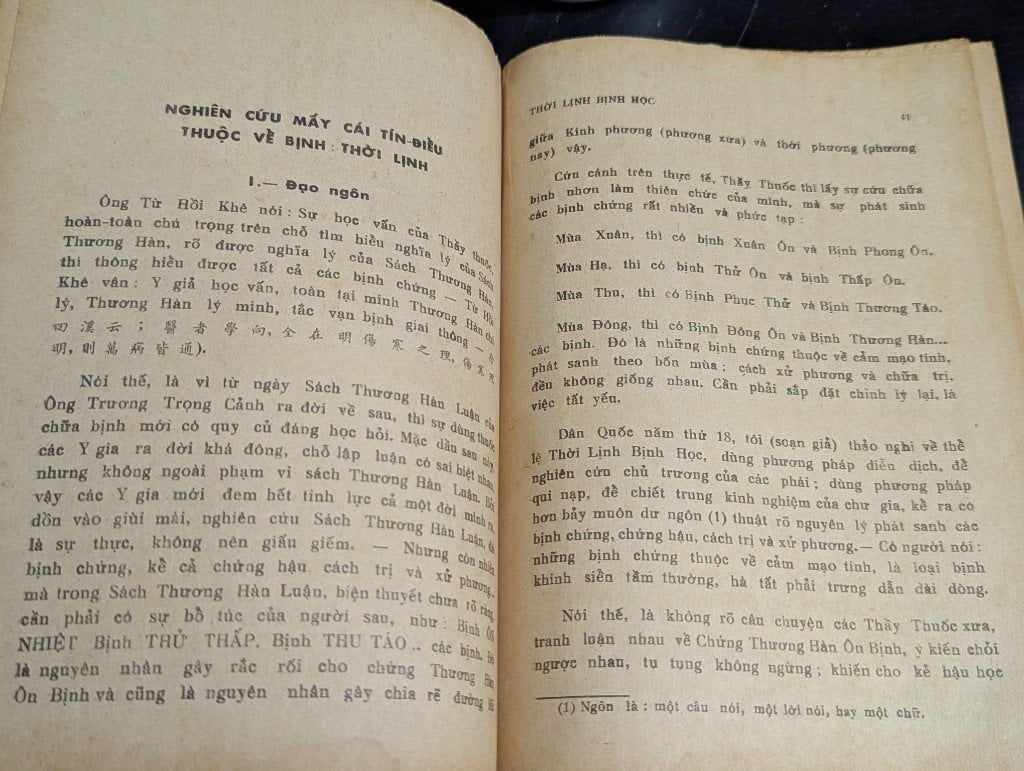 NGHIÊN CỨU MẤY CÁI TÍN-ĐIỀU
THUỘC VỀ BỊNH : THỜI LỊNH
I.— Đạo ngôn
Ông Từ Hồi Khê nói : Sự học vấn của Thầy thuốc,
hoàn-toàn chú trọng trên chỗ tìm hiểu nghĩa lý của Sách
Thương Hàn, rõ được nghĩa lý của Sách Thương Hàn,
thì thông hiểu được tất cả các bịnh chứng — Từ Hồi
Khê vân : Y giả học vấn, toàn tại minh Thương Hàn chi
lý, Thương Hàn lý minh, tắc vạn bịnh giai thông —
云 ; 醫 者 學 向, 全 在 明 傷 寒 之 理, 傷 寒 理
明, 則 萬 病 皆 通).
Nói thế, là vì từ ngày Sách Thương Hàn Luận của
Ông Trương Trọng Cảnh ra đời về sau, thì sự dùng thuốc
chữa bịnh mới có quy củ đáng học hỏi. Mặc dầu sau này,
các Y gia ra đời khá đông, chỗ lập luận có sai biệt nhau,
nhưng không ngoài phạm vi sách Thương Hàn Luận. Bởi
vậy các Y gia mới đem hết tinh lực cả một đời mình ra,
dồn vào giùi mài, nghiên cứu Sách Thương Hàn Luận, đó
là sự thực, không nên giấu giếm. — Nhưng còn nhiều
bịnh chứng, kể cả chứng hậu, cách trị và xử phương..
mà trong Sách Thương Hàn Luận, biện thuyết chưa rõ ràng,
cần phải có sự bổ túc của người sau, như : Bịnh ÔN
NHIỆT Bịnh THỬ THẤP, Bịnh THU TÁO .. các bịnh. Đó
là nguyên nhân gây rắc rối cho chứng Thương Hàn
Ôn Bịnh và cũng là nguyên nhân gây chia rẽ đường lối
THỜI LỊNH BỊNH HỌC
41
giữa Kinh phương (phương xưa) và thời phương (phương
nay) vậy.
Cứu cánh trên thực tế, Thầy Thuốc thì lấy sự cứu chữa
bịnh nhơn làm thiên chức của mình, mà sự phát sinh
các bịnh chứng rất nhiều và phức tạp :
Mùa Xuân, thì có bịnh Xuân Ôn và Bịnh Phong Ôn.
Mùa Hạ, thì có bịnh Thử Ôn và bịnh Thấp Ôn.
Mùa Thu, thì có Bịnh Phục Thử và Bịnh Thương Táo.
Mùa Đông, thì có Bịnh Đông Ôn và Bịnh Thương Hàn...
các bịnh. Đó là những bịnh chứng thuộc về cảm mạo tính,
phát sanh theo bốn mùa ; cách xử phương và chữa trị,
đều không giống nhau. Cần phải sắp đặt chỉnh lý lại, là
việc tất yếu.
Dân Quốc năm thứ 18, tôi (soạn giả) thảo nghị về thể
lệ Thời Lịnh Bịnh Học, dùng phương pháp diễn dịch, để
nghiên cứu chủ trương của các phái ; dùng phương pháp
qui nạp, để chiết trung kinh nghiệm của chư gia, kể ra có
hơn bảy muôn dư ngôn (1) thuật rõ nguyên lý phát sanh các
bịnh chứng, chứng hậu, cách trị và xử phương.— Có người nói :
những bịnh chứng thuộc về cảm mạo tính, là loại bịnh
khinh siển tầm thường, hà tất phải trưng dẫn dài dòng.
Nói thế, là không rõ câu chuyện các Thầy Thuốc xưa,
tranh luận nhau về Chứng Thương Hàn Ôn Bịnh, ý kiến chỏi
ngược nhau, tụ tụng không ngừng ; khiến cho kẻ hậu học
(1) Ngôn là : một câu nói, một lời nói, hay một chữ.